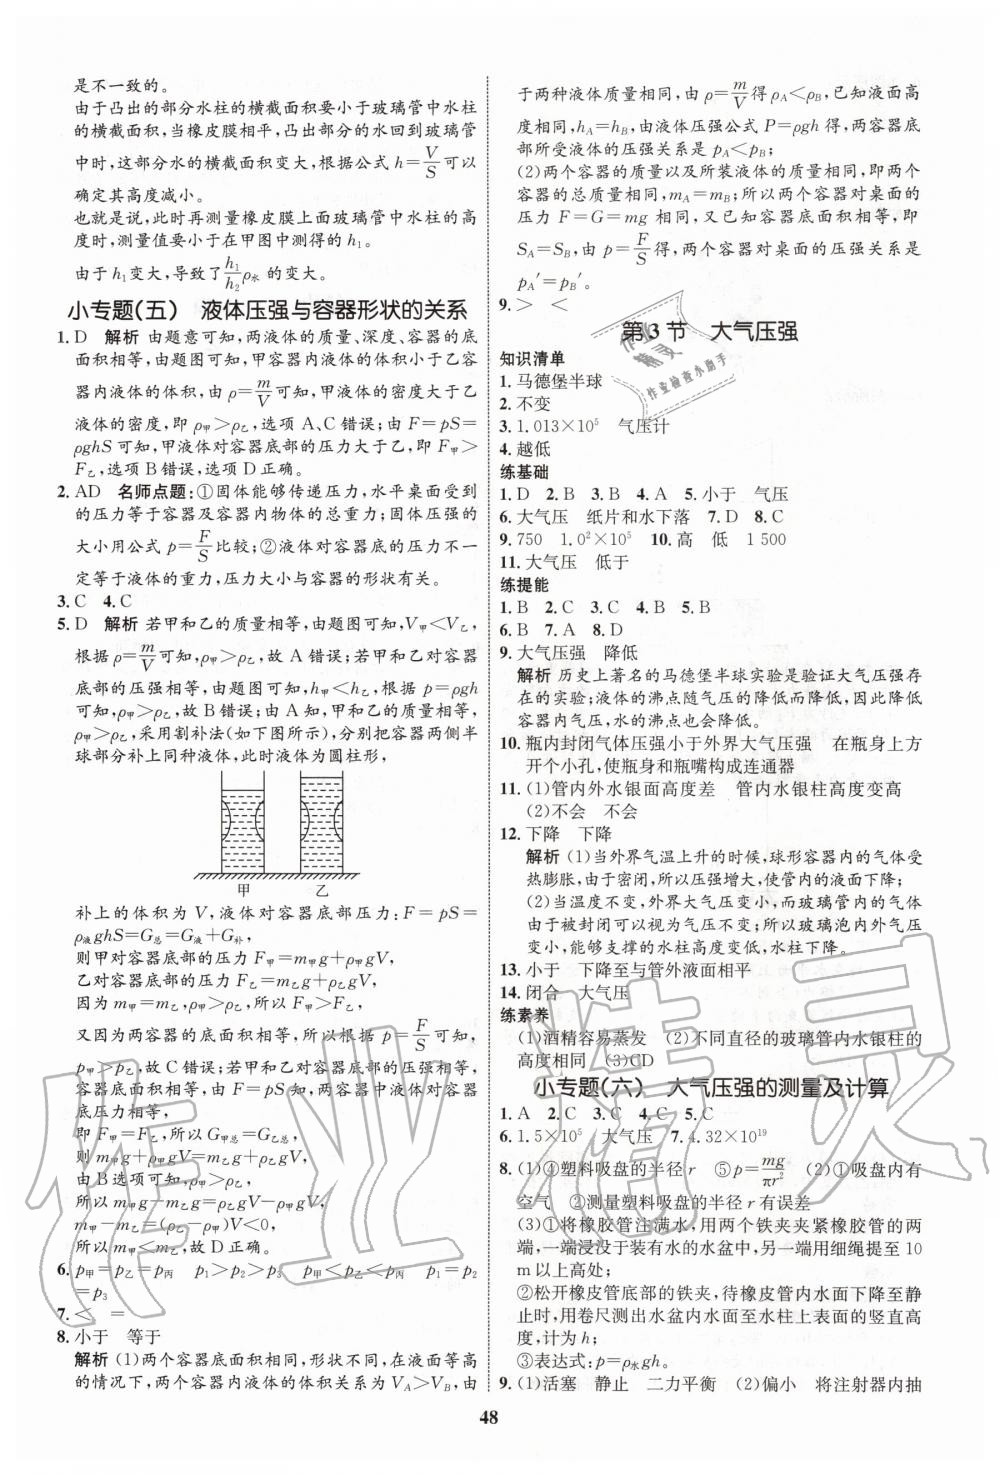 是不一致的。
由于凸出的部分水柱的横截面积要小于玻璃管中水柱
的横截面积,当橡皮膜相平,凸出部分的水回到玻璃管
中时,这部分水的横截面积变大,根据公式 h=V/S 可以
确定其高度减小。
也就是说,此时再测量橡皮膜上面玻璃管中水柱的高
度时,测量值要小于在甲图中测得的 h₁。
由于 h₁ 变大,导致了 h₁/h₂ ρ水 的变大。
小专题(五) 液体压强与容器形状的关系
1. D 解析 由题意可知,两液体的质量、深度、容器的底
面积相等,由题图可知,甲容器内液体的体积小于乙容
器内液体的体积,由 ρ=m/V 可知,甲液体的密度大于乙
液体的密度,即 ρ甲>ρ乙,选项 A、C 错误;由 F=pS=
ρghS 可知,甲液体对容器底部的压力大于乙,即 F甲>
F乙,选项 B 错误,选项 D 正确。
2. AD 名师点题:①固体能够传递压力,水平桌面受到
的压力等于容器及容器内物体的总重力;固体压强的
大小用公式 p=F/S 比较;②液体对容器底的压力不一
定等于液体的重力,压力大小与容器的形状有关。
3. C 4. C
5. D 解析 若甲和乙的质量相等,由题图可知,V甲<V乙,
根据 ρ=m/V 可知,ρ甲>ρ乙,故 A 错误;若甲和乙对容器
底部的压强相等,由题图可知,h甲<h乙,根据 p=ρgh
可知,ρ甲>ρ乙,故 B 错误;由 A 知,甲和乙的质量相等,
ρ甲>ρ乙,采用割补法(如下图所示),分别把容器两侧半
球部分补上同种液体,此时液体为圆柱形,
甲 乙
补上的体积为 V,液体对容器底部压力:F=pS=
ρ液ghS=G总=G液+G补,
则甲对容器底部的压力 F甲=m甲g+ρ甲gV,
乙对容器底部的压力 F乙=m乙g+ρ乙gV,
因为 m甲=m乙,ρ甲>ρ乙,所以 F甲>F乙,
又因为两容器的底面积相等,所以根据 p=F/S 可知,
p甲>p乙,故 C 错误;若甲和乙对容器底部的压强相
等,底面积也相等,由 F=pS知,两容器中液体对容器
底部压力相等,
即 F甲=F乙,所以 G甲总=G乙总,
则 m甲g+ρ甲gV=m乙g+ρ乙gV,
由 B 选项可知,ρ甲>ρ乙,
所以 m甲g-m乙g=ρ乙gV-ρ甲gV,
m甲-m乙=(ρ乙-ρ甲)V<0,
所以 m甲<m乙,故 D 正确。
6. p甲=p乙=p丙 p₁>p₂>p₃ p甲<p乙<p丙 p₁=p₂
=p₃
7. < =
8. 小于 等于
解析 (1)两个容器底面积相同,形状不同,在液面等高
的情况下,两个容器内液体的体积关系为 VA>VB,由
于两种液体质量相同,由 ρ=m/V 得 ρA<ρB,已知液面高
度相同,hA=hB,由液体压强公式 P=ρgh 得,两容器底
部所受液体的压强关系是 pA<pB;
(2)两个容器的质量以及所装液体的质量相同,即两个
容器的总质量相同,mA=mB;所以两个容器对桌面的
压力 F=G=mg 相同,又已知容器底面积相等,即
SA=SB,由 p=F/S 得,两个容器对桌面的压强关系是
pA′=pB′。
9. > <
第 3 节 大气压强
知识清单
1. 马德堡半球
2. 不变
3. 1.013×10⁵ 气压计
4. 越低
练基础
1. D 2. B 3. B 4. A 5. 小于 气压
6. 大气压 纸片和水下落 7. D 8. C
9. 750 1.0²×10⁵ 10. 高 低 1 500
11. 大气压 低于
练提能
1. B 2. C 3. C 4. B 5. B
6. B 7. A 8. D
9. 大气压强 降低
解析 历史上著名的马德堡半球实验是验证大气压强存
在的实验;液体的沸点随气压的降低而降低,因此降低
容器内气压,水的沸点也会降低。
10. 瓶内封闭气体压强小于外界大气压强 在瓶身上方
开个小孔,使瓶身和瓶嘴构成连通器
11. (1)管内外水银面高度差 管内水银柱高度变高
(2)不会 不会
12. 下降 下降
解析 (1)当外界气温上升的时候,球形容器内的气体受
热膨胀,由于密闭,所以压强增大,使管内的液面下降;
(2)当温度不变,外界大气压变小,而玻璃管内的气体
由于被封闭可以视为气压不变;所以玻璃泡内外气压
变小,能够支撑的水柱高度变低,水柱下降。
13. 小于 下降至与管外液面相平
14. 闭合 大气压
练素养
(1)酒精容易蒸发 (2)不同直径的玻璃管内水银柱的
高度相同 (3)CD
小专题(六) 大气压强的测量及计算
1. A 2. C 3. C 4. C 5. C
6. 1.5×10⁵ 大气压 7. 4.32×10¹⁹
8. (1)④塑料吸盘的半径 r ⑤p=mg/πr² (2)①吸盘内有
空气 ②测量塑料吸盘的半径 r 有误差
(3)①将橡胶管注满水,用两个铁夹夹紧橡胶管的两
端,一端浸没于装有水的水盆中,另一端用细绳提至 10
m 以上高处;
②松开橡皮管底部的铁夹,待橡皮管内水面下降至静
止时,用卷尺测出水盆内水面至水柱上表面的竖直高
度,计为 h;
③表达式:p=ρ水gh。
9. (1)活塞 静止 二力平衡 (2)偏小 将注射器内抽
48
作业精灵
作业精灵
作业检查小助手